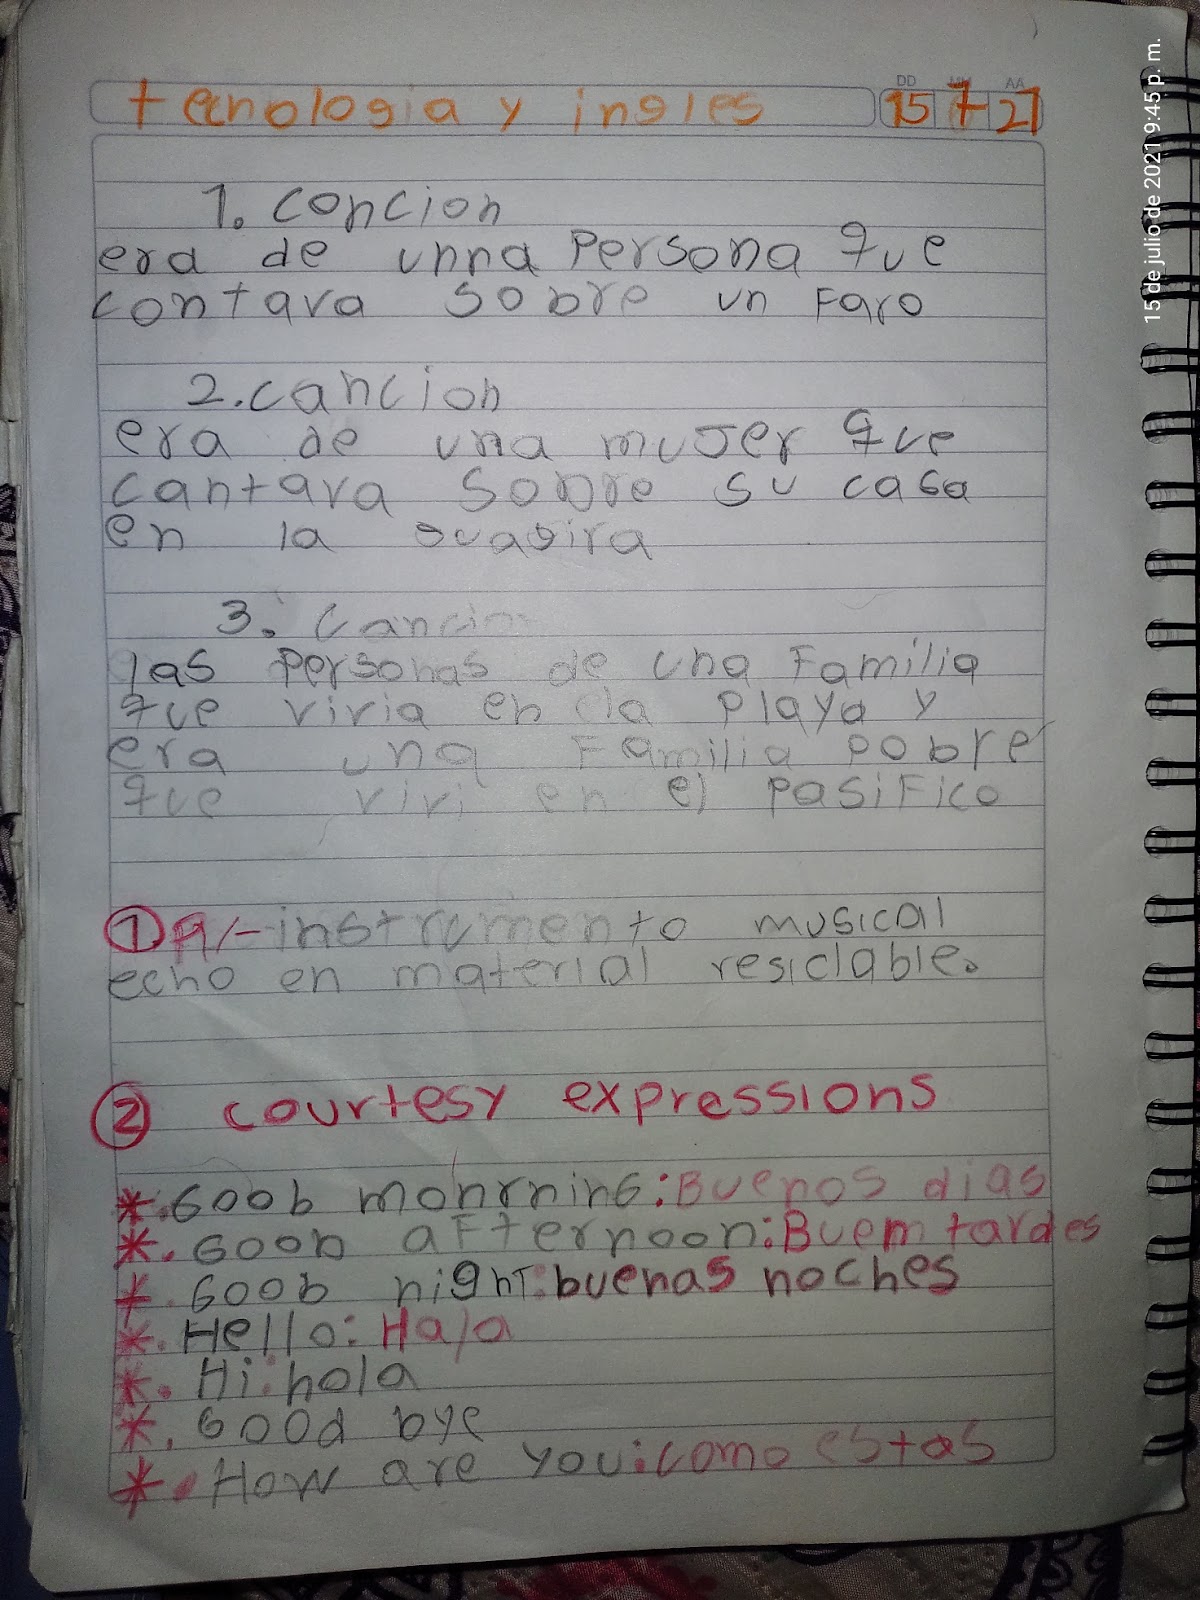 tecnologia y ingles
DD MM AA
15 7 21
15 de julio de 2021 9:45 p. m.
1. concion
era de unna persona que
contava sobre un Faro
2. cancion
era de una muJer que
cantava sobre su casa
en la guagira
3. cancion
las personas de una Familia
que vivia en la playa y
era una Familia pobre
que vivi en el pasifico
1 A/- instrumento musical
echo en material resiclable.
2 courtesy expressions
*. Goob monrning: Buenos dias
*. Goob aFternoon: Buem tardes
*. Goob night: buenas noches
*. Hello: Hala
*. Hi: hola
*. Good bye
*. How are you: como estas